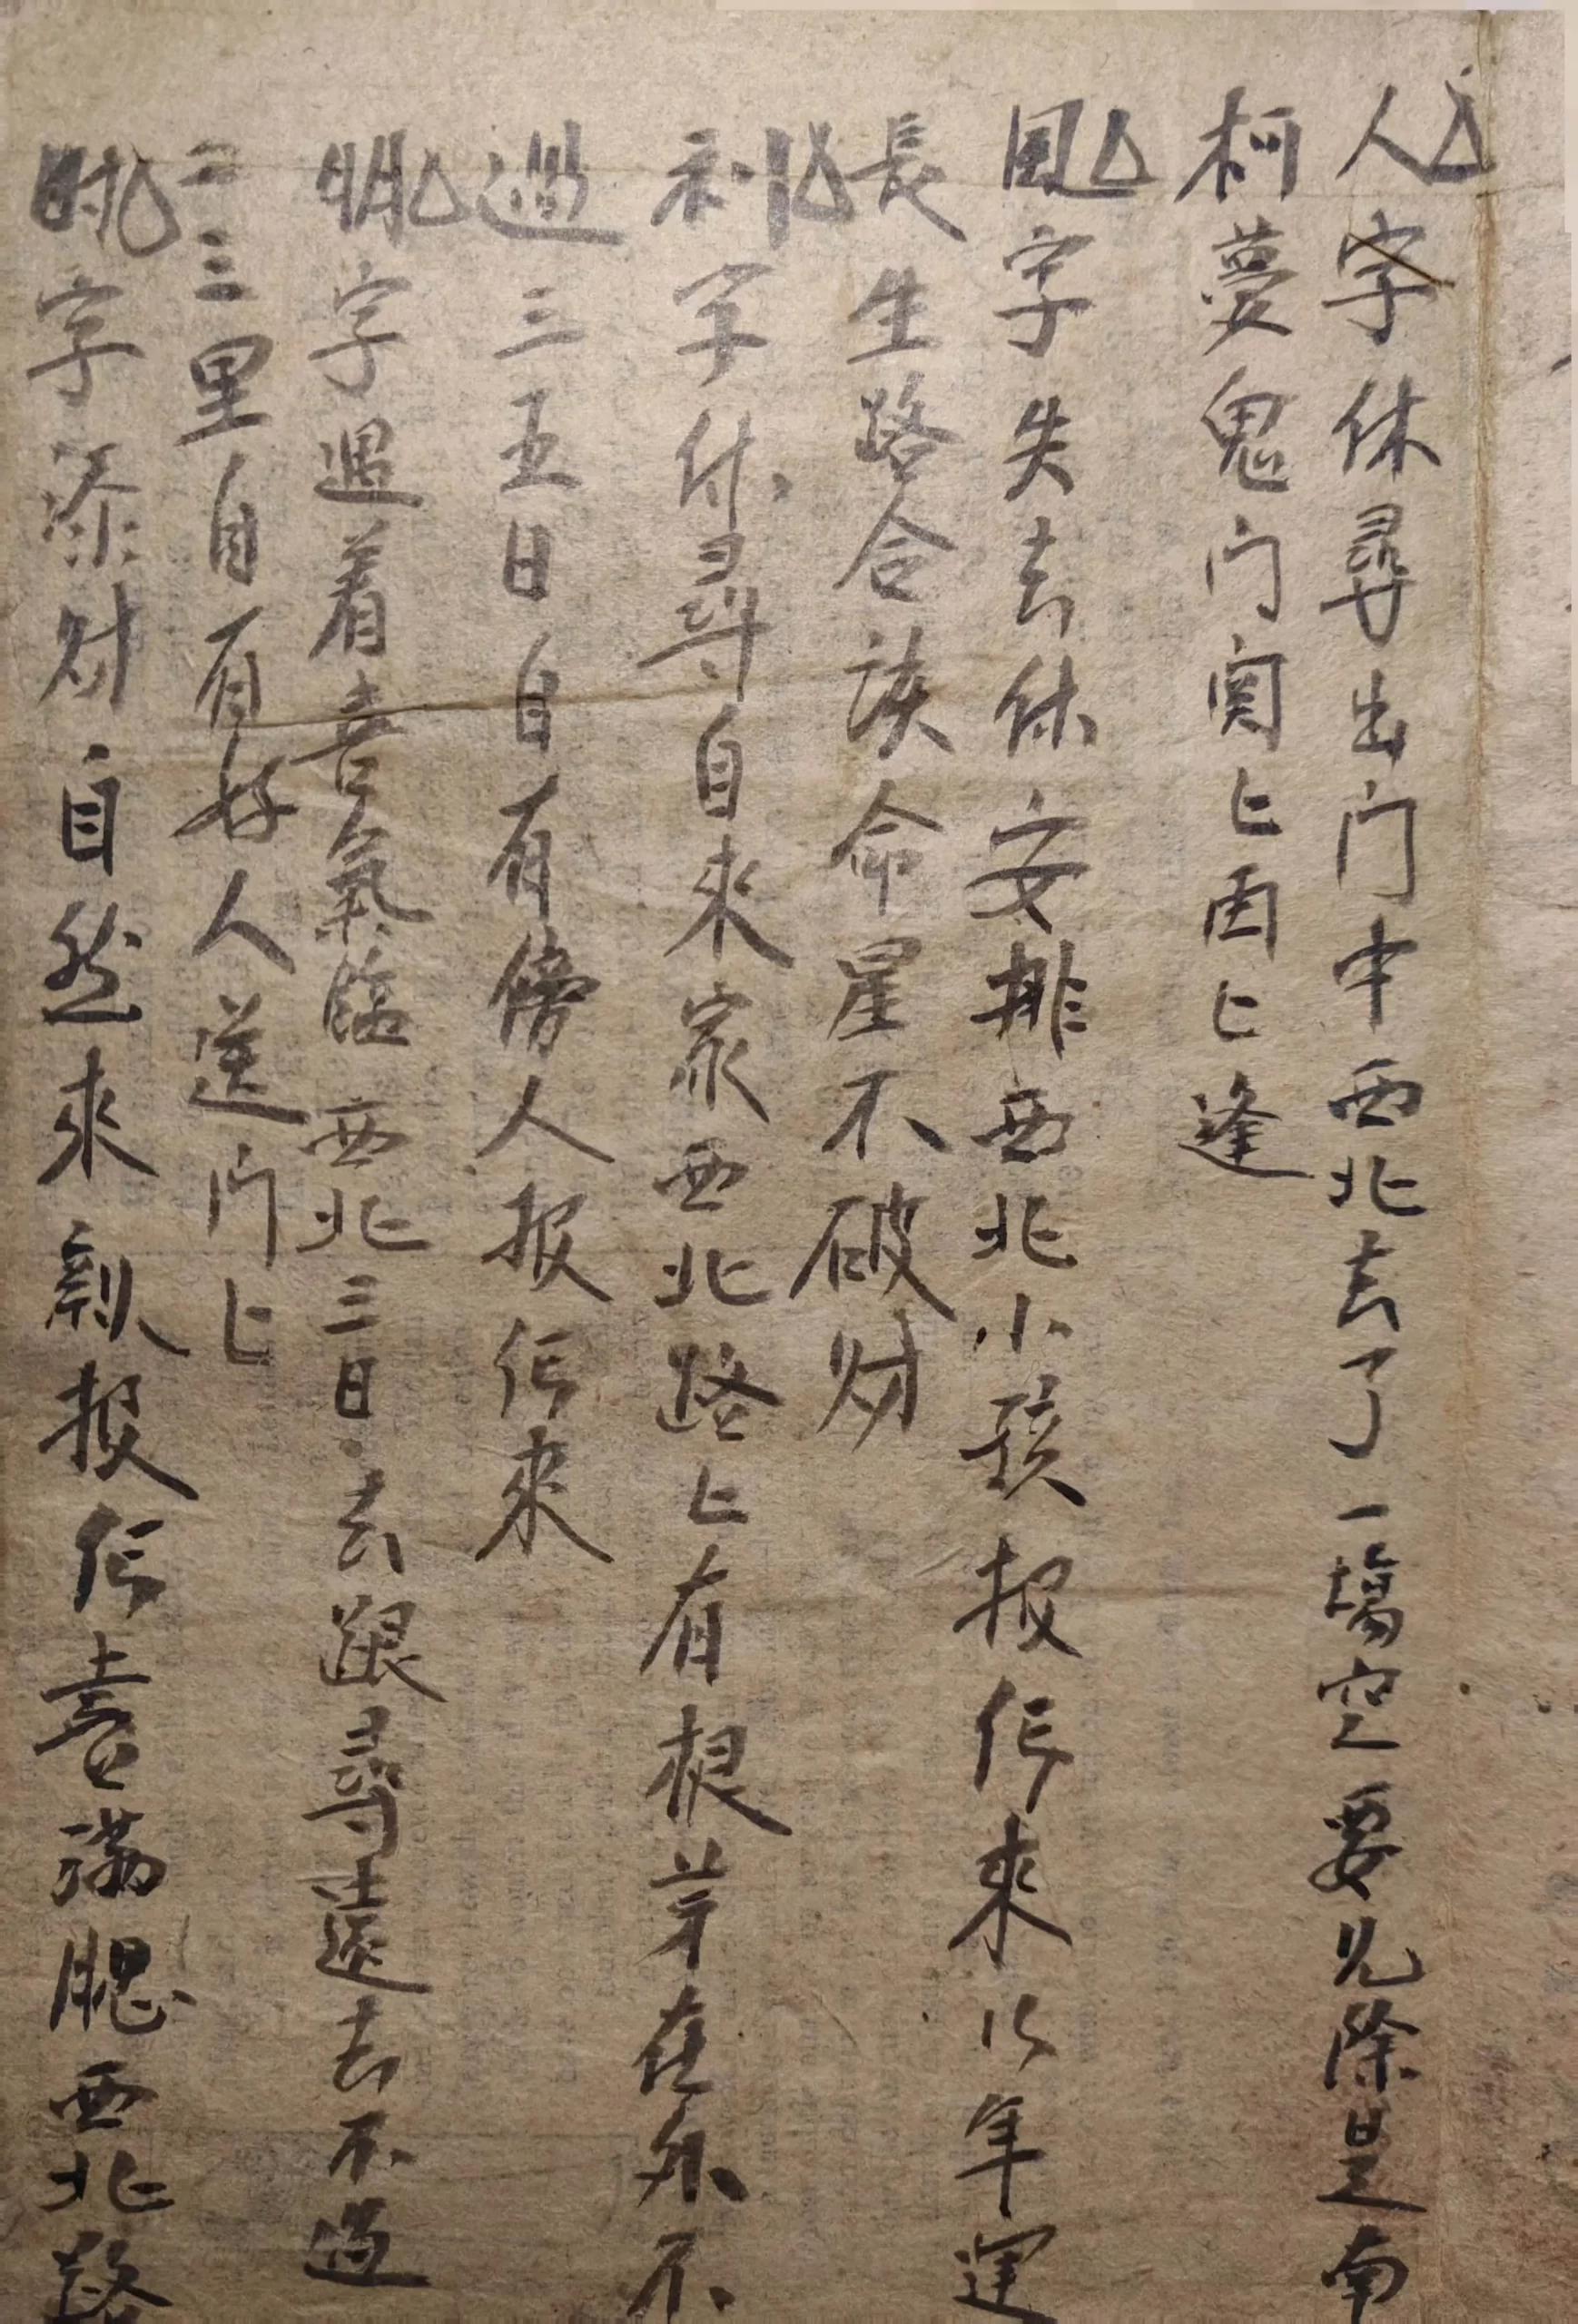 人字休尋出门中西北去了一塲空要见除是南
柯夢鬼门關上因上逢
風字失去休安排西北小孩报信来以年運
長生路合該命星不破财
利字休尋自来家西北路上有根芽在外不
過三五日自有傍人报信来
明字遇着喜氣臨西北三日去跟尋遠去不過
二三里自有好人送门上
字添财自然来親报信喜满腮西北路